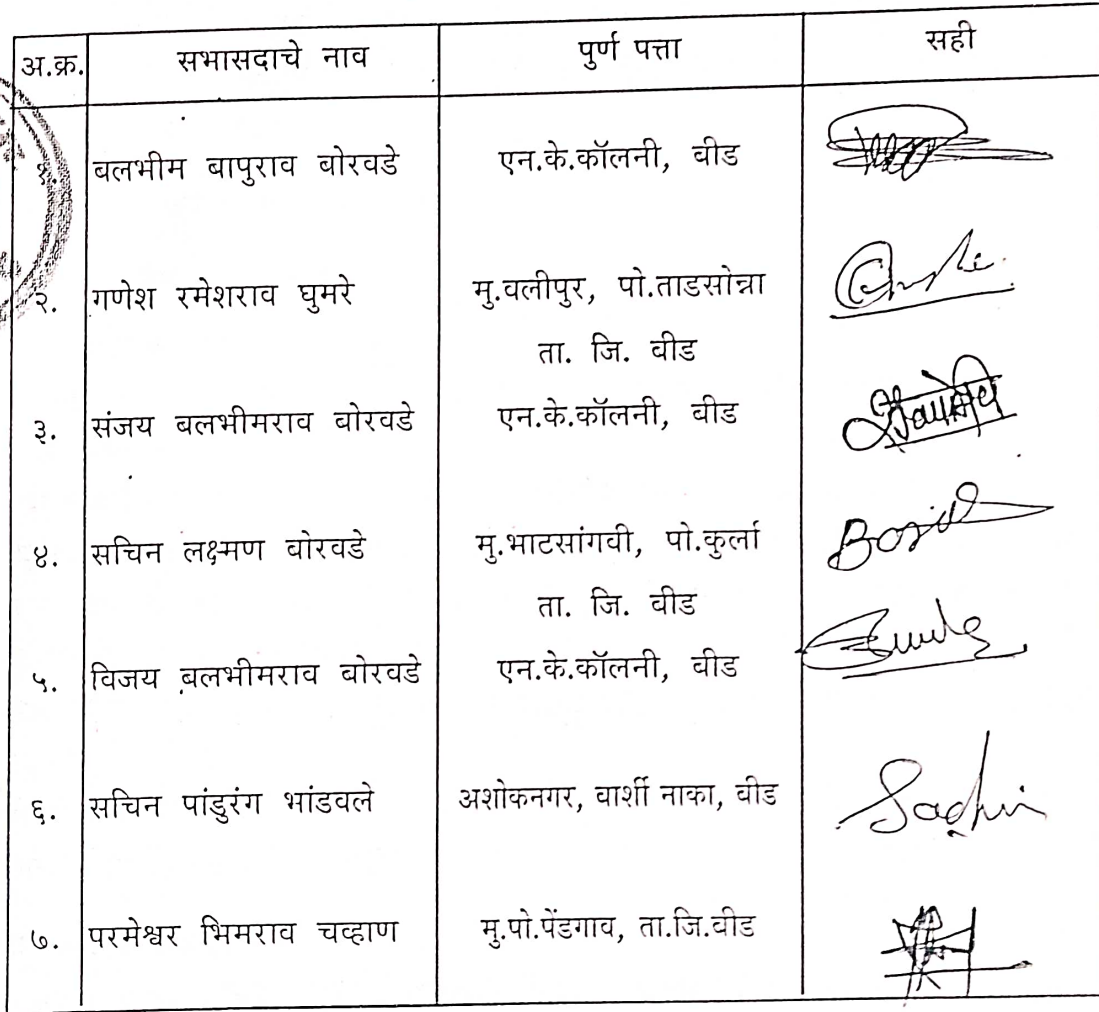 अ.क्र. सभासदाचे नाव पुर्ण पत्ता सही
१. बलभीम बापुराव बोरवडे एन.के.कॉलनी, बीड
२. गणेश रमेशराव घुमरे मु.वलीपुर, पो.ताडसोन्ना
ता. जि. बीड
३. संजय बलभीमराव बोरवडे एन.के.कॉलनी, बीड
४. सचिन लक्ष्मण बोरवडे मु.भाटसांगवी, पो.कुर्ला
ता. जि. बीड
५. विजय बलभीमराव बोरवडे एन.के.कॉलनी, बीड
६. सचिन पांडुरंग भांडवले अशोकनगर, बार्शी नाका, बीड
Sachin
७. परमेश्वर भिमराव चव्हाण मु.पो.पेंडगाव, ता.जि.बीड